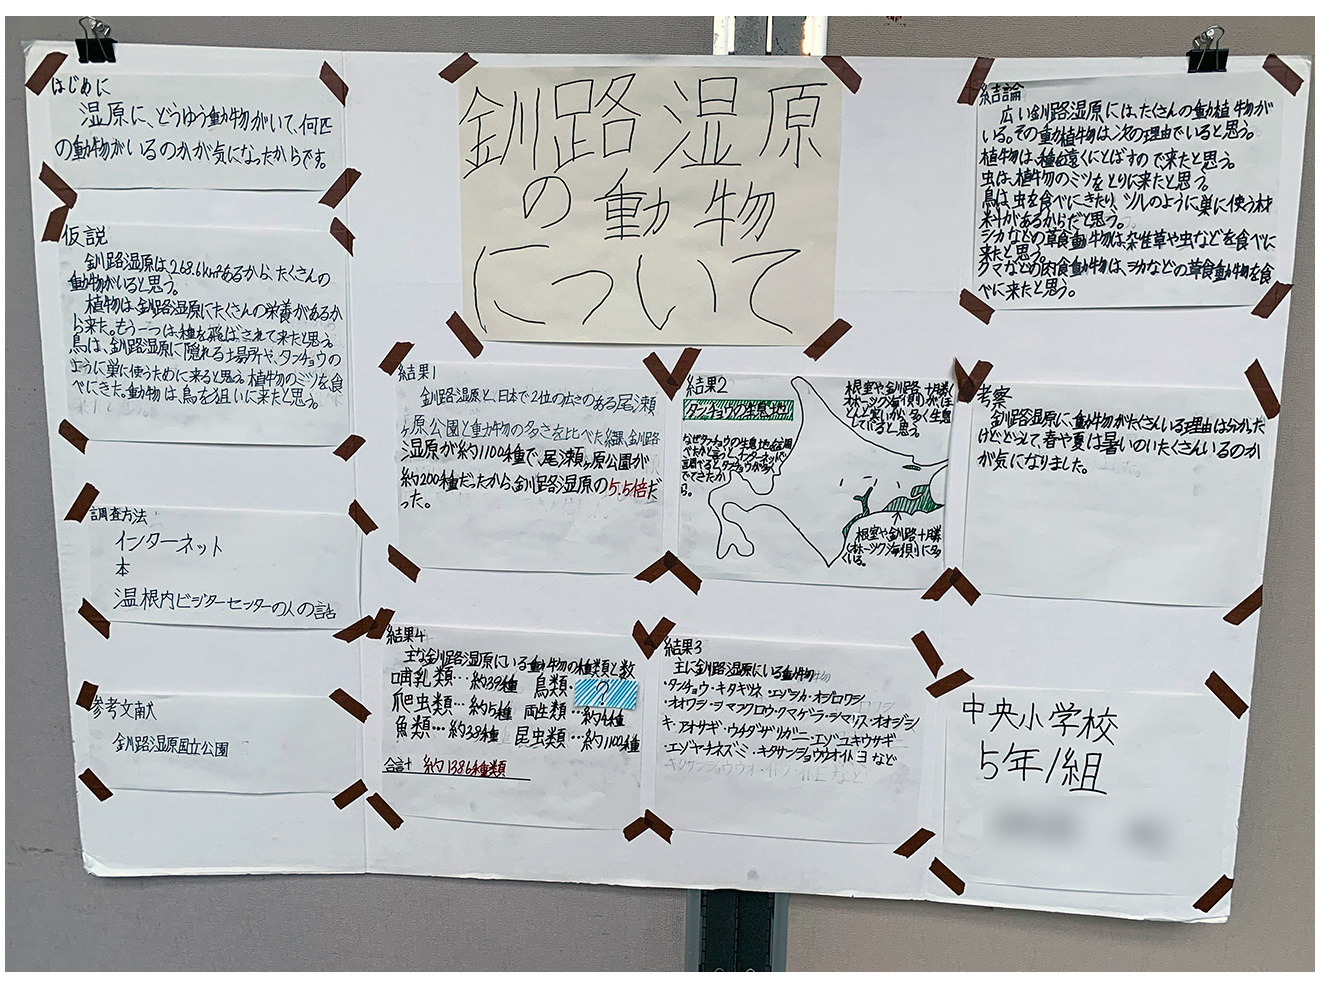 釧路湿原
の動物
について
はじめに
湿原に、どうゆう動物がいて、何匹
の動物がいるのかが気になったからです。
仮説
釧路湿原は268.6km²あるから、たくさんの
動物がいると思う。
植物は、釧路湿原にたくさんの栄養があるか
ら来た。もう一つは、種を飛ばされて来たと思う
鳥は、釧路湿原に隠れる場所や、タンチョウの
ように巣に使うために来ると思う。植物のミツを食
べにきた。動物は、鳥を狙いに来たと思う。
調査方法
インターネット
本
温根内ビジターセンターの人の話
参考文献
釧路湿原国立公園
結果1
釧路湿原と、日本で2位の広さのある尾瀬
ヶ原公園と動物の多さを比べた結果、釧路
湿原が約1100種で、尾瀬ヶ原公園が
約200種だったから、釧路湿原の5.5倍だ
った。
結果2
タンチョウの生息地
なぜタンチョウの生息地を調
べたかと言うと、インターネットで
調べるとタンチョウが多く
でてきたか
ら。
根室や釧路、十勝、
オホーツク海側がほ
とんど寒いから多く生息
していると思う
根室や釧路、十勝
オホーツク海側に多
くいる。
結果3
主に釧路湿原にいる動物
・タンチョウ・キタキツネ・エゾシカ・オジロワシ
・オオワシ・シマフクロウ・クマゲラ・シマリス・オオジシ
ギ・アオサギ・ウチダザリガニ・エゾユキウサギ
・エゾヤチネズミ・キタサンショウウオ・イトヨなど
結果4
主な釧路湿原にいる動物の種類と数
哺乳類…約39種 鳥類…?
爬虫類…約5種 両生類…約4種
魚類…約38種 昆虫類…約1100種
合計 約1386種類
結論
広い釧路湿原には、たくさんの動植物が
いる。その動植物は次の理由でいると思う。
植物は、種を遠くにとばすので来たと思う。
虫は、植物のミツをとりに来たと思う。
鳥は、虫を食べにきたり、ツルのように巣に使う材
料があるからだと思う。
シカなどの草食動物は、雑性草や虫などを食べに
来たと思う。
クマなどの肉食動物は、シカなどの草食動物を食
べに来たと思う。
考察
釧路湿原に、動物がたくさんいる理由はわかった
けど、どうして、春や夏は暑いのにたくさんいるのか
が気になりました。
中央小学校
5年1組